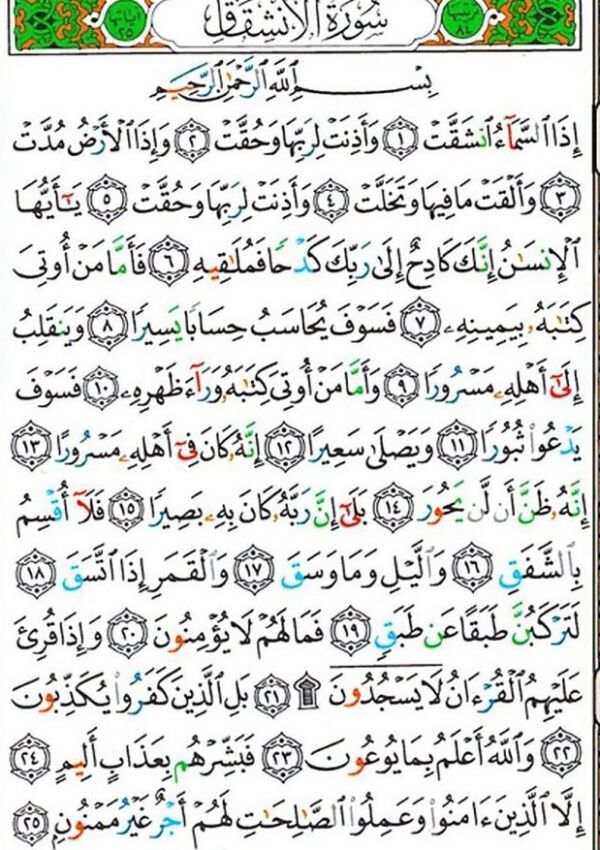 ترتيبها ٨٤ سُورَةُ الْاِنْشِقَاقِ آياتها ٢٥
بِسْمِ اللَّهِ الرَّحْمَٰنِ الرَّحِيمِ
إِذَا السَّمَآءُ انشَقَّتْ ١ وَأَذِنَتْ لِرَبِّهَا وَحُقَّتْ ٢ وَإِذَا الْأَرْضُ مُدَّتْ
٣ وَأَلْقَتْ مَا فِيهَا وَتَخَلَّتْ ٤ وَأَذِنَتْ لِرَبِّهَا وَحُقَّتْ ٥ يَٰٓأَيُّهَا
الْإِنسَٰنُ إِنَّكَ كَادِحٌ إِلَىٰ رَبِّكَ كَدْحًا فَمُلَٰقِيهِ ٦ فَأَمَّا مَنْ أُوتِيَ
كِتَٰبَهُۥ بِيَمِينِهِۦ ٧ فَسَوْفَ يُحَاسَبُ حِسَابًا يَسِيرًا ٨ وَيَنقَلِبُ
إِلَىٰٓ أَهْلِهِۦ مَسْرُورًا ٩ وَأَمَّا مَنْ أُوتِيَ كِتَٰبَهُۥ وَرَآءَ ظَهْرِهِۦ ١٠ فَسَوْفَ
يَدْعُوا۟ ثُبُورًا ١١ وَيَصْلَىٰ سَعِيرًا ١٢ إِنَّهُۥ كَانَ فِىٓ أَهْلِهِۦ مَسْرُورًا ١٣
إِنَّهُۥ ظَنَّ أَن لَّن يَحُورَ ١٤ بَلَىٰٓ إِنَّ رَبَّهُۥ كَانَ بِهِۦ بَصِيرًا ١٥ فَلَآ أُقْسِمُ
بِالشَّفَقِ ١٦ وَالَّيْلِ وَمَا وَسَقَ ١٧ وَالْقَمَرِ إِذَا اتَّسَقَ ١٨
لَتَرْكَبُنَّ طَبَقًا عَن طَبَقٍ ١٩ فَمَا لَهُمْ لَا يُؤْمِنُونَ ٢٠ وَإِذَا قُرِئَ
عَلَيْهِمُ الْقُرْءَانُ لَا يَسْجُدُونَ ۩ ٢١ بَلِ الَّذِينَ كَفَرُوا۟ يُكَذِّبُونَ
٢٢ وَاللَّهُ أَعْلَمُ بِمَا يُوعُونَ ٢٣ فَبَشِّرْهُم بِعَذَابٍ أَلِيمٍ ٢٤
إِلَّا الَّذِينَ ءَامَنُوا۟ وَعَمِلُوا۟ الصَّٰلِحَٰتِ لَهُمْ أَجْرٌ غَيْرُ مَمْنُونٍ ٢٥